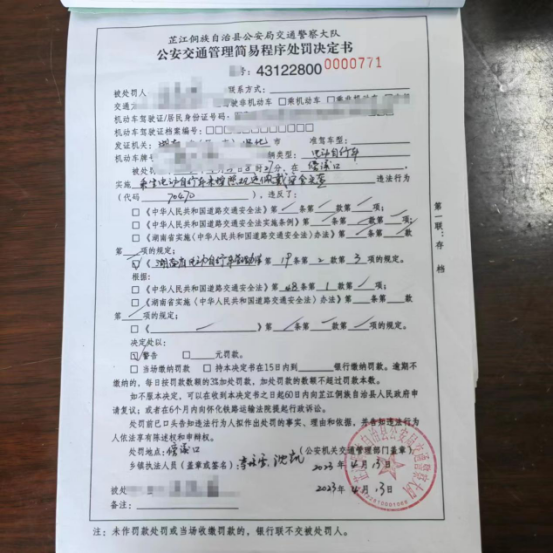 芷江侗族自治县公安局交通警察大队
公安交通管理简易程序处罚决定书
号：43122800 0000771
被处罚人 联系方式：
交通 驾驶非机动车 □乘机动车 □乘非机动车
机动车驾驶证/居民身份证号码：
机动车驾驶证档案编号：□□□□□□□□□□□□
发证机关：湖南 怀化 市 准驾车型：
机动车牌 辆类型：电动自行车
被处 分，在
实施 乘坐电动自行车未按照规定佩戴安全头盔 违法行为
（代码 70470 ），违反了：
□《中华人民共和国道路交通安全法》第/条第/款第/项；
□《中华人民共和国道路交通安全法实施条例》第/条第/款第/项；
□《湖南省实施〈中华人民共和国道路交通安全法〉办法》第/条第/款
第/项的规定；
☑《湖南省电动自行车管理办法》第19条第2款第3项的规定。
根据：
□《中华人民共和国道路交通安全法》第48条第1款第/项；
□《湖南省实施〈中华人民共和国道路交通安全法〉办法》第/条第/款
第/项的规定；
□《 / 》第/条第/款第/项的规定。
决定处以：
☑警告 □ 元罚款。
□ 当场缴纳罚款 □ 持本决定书在15日内到 银行缴纳罚款。逾期不
缴纳的，每日按罚款数额的3%加处罚款，加处罚款的数额不超过罚款本数。
如不服本决定，可以在收到本决定书之日起60日内向芷江侗族自治县人民政府申
请复议；或者在6个月内向怀化铁路运输法院提起行政诉讼。
处罚前已口头告知违法行为人拟作出处罚的事实、理由和依据，并告知违法行为
人依法享有陈述权和申辩权。
处罚地点：
（公安机关交通管理部门盖章）
乡镇执法人员（盖章或签名）：
2023年4月13日
被处
2023年4月13日
备注：
注：未作罚款处罚或当场收缴罚款的，银行联不交被处罚人。
第一联：存档